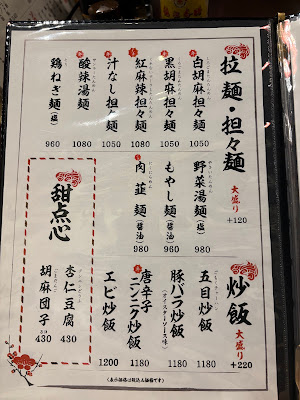 拉麺・担々麺
大盛り
+120
白胡麻担々麺
1050
黒胡麻担々麺
1050
紅麻辣担々麺
1080
汁なし担々麺
1050
酸辣湯麺
1080
鶏ねぎ麺(塩)
960
野菜湯麺(塩)
980
もやし麺(醤油)
960
肉韮麺(醤油)
980
甜点心
杏仁豆腐
430
胡麻団子
430
炒飯
大盛り
+220
五目炒飯
1180
豚バラ炒飯
(オイスターソース味)
1180
唐辛子
ニンニク炒飯
1180
エビ炒飯
1200
(表示価格は税込み価格です)